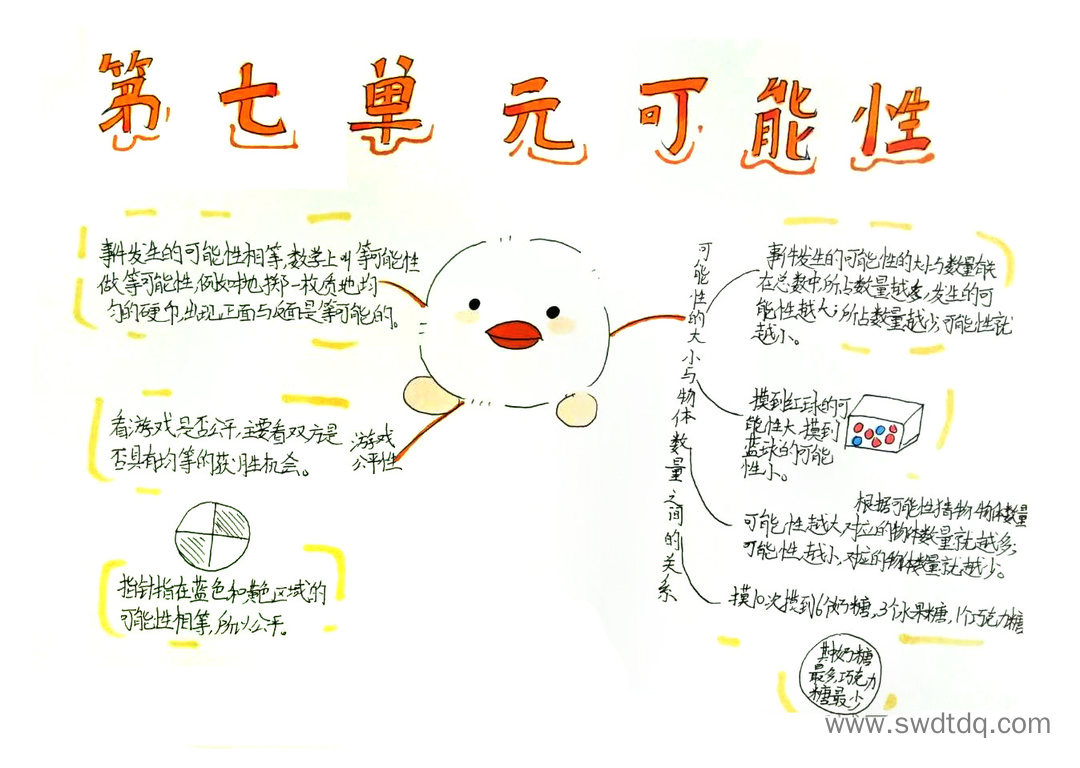 第七单元可能性
事件发生的可能性相等,数学上叫等可能性
做等可能性,例如:抛掷一枚质地均
匀的硬币,出现正面与反面是等可能的。
看游戏是否公平,主要看双方是
否具有均等的获胜机会。
游戏
公平性
指针指在蓝色和黄色区域的
可能性相等,所以公平。
可能性的大小与物体数量之间的关系
事件发生的可能性的大小与数量有关
在总数中,所占数量越多,发生的可
能性越大;所占数量越少,可能性就
越小。
摸到红球的可
能性大,摸到
蓝球的可能
性小。
根据可能性猜物体数量
可能性越大,对应的物体数量就越多;
可能性越小,对应的物体数量就越少。
摸10次摸到6个奶糖,3个水果糖,1个巧克力糖
其中奶糖
最多,巧克力
糖最少
www.swdtdq.com